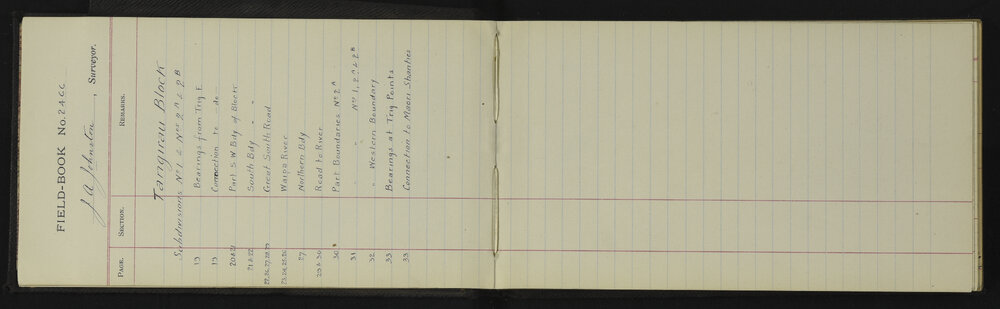 FIELD-BOOK No. 2466
J. A. Johnston, Surveyor.
PAGE. SECTION. REMARKS.
Block
Subdivisions No 1 & Nos 2A & 2B
19 Bearings from Trig. E
19 Connection to - do -
20 & 21 Part S.W Bdy of Block
21 & 22 South Bdy " "
Great South Road
23.24.25.26 Waipa River
27 Northern Bdy
29 & 30 Road to River
30 Part Boundaries No 2A
31 " " Nos 1, 2A & 2B
32 " Western Boundary
33 Bearings at Trig Points
33 Connection to Maori Shanties